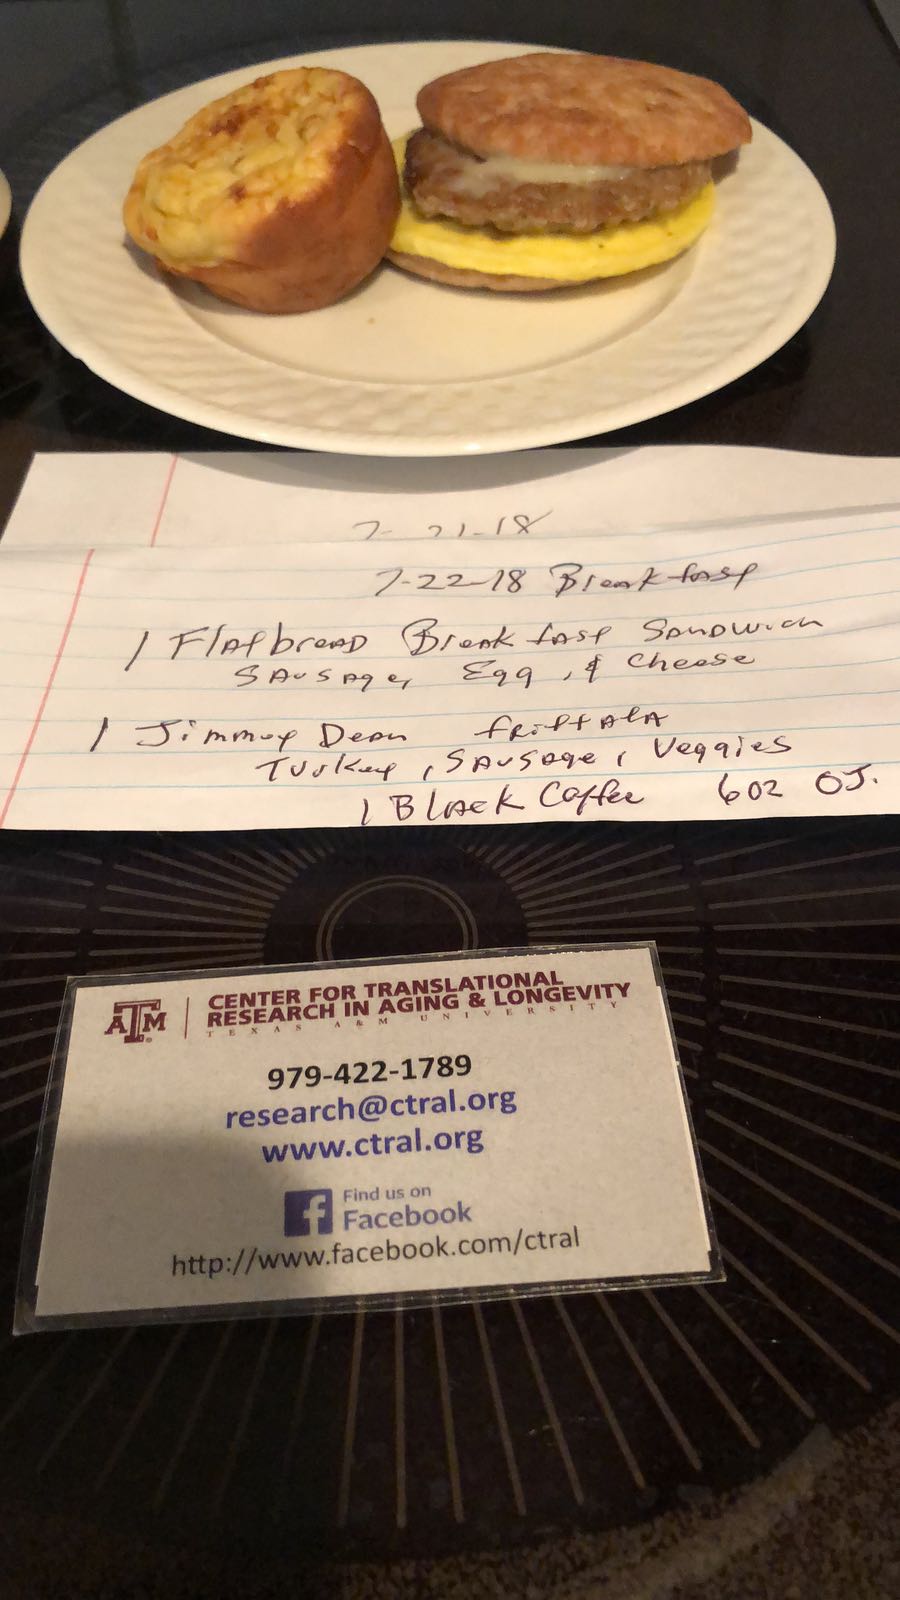 7-21-18
7-22-18 Breakfast
1 Flatbread Breakfast Sandwich
Sausage, Egg, & Cheese
1 Jimmy Dean frittata
Turkey, Sausage, Veggies
1 Black Coffee 6oz OJ.
ATM
CENTER FOR TRANSLATIONAL
RESEARCH IN AGING & LONGEVITY
TEXAS A&M UNIVERSITY
979-422-1789
research@ctral.org
www.ctral.org
f Find us on
Facebook
http://www.facebook.com/ctral